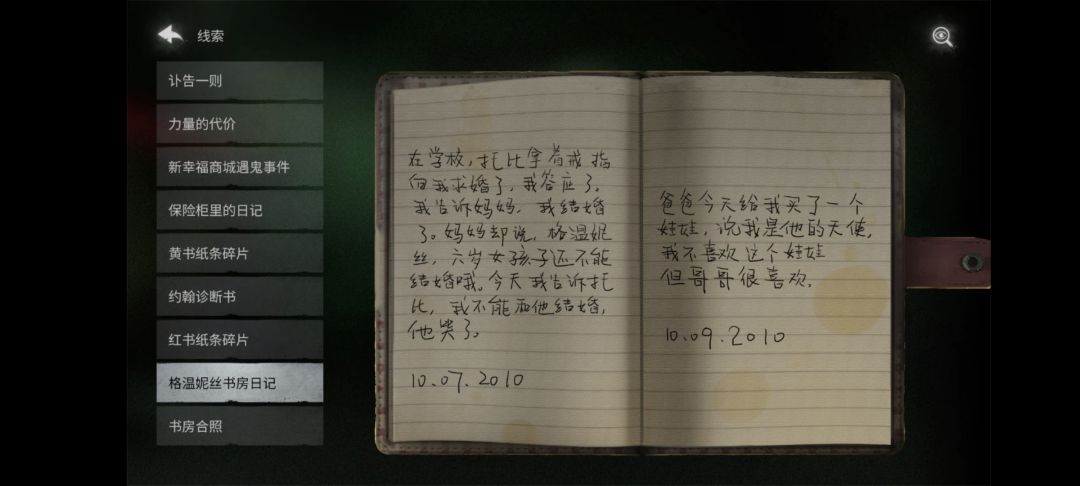 线索
讣告一则
力量的代价
新幸福商城遇鬼事件
保险柜里的日记
黄书纸条碎片
约翰诊断书
红书纸条碎片
格温妮丝书房日记
书房合照
在学校，托比拿着戒指
向我求婚了，我答应了。
我告诉妈妈，我结婚
了。妈妈却说，格温妮
丝，六岁女孩子还不能
结婚哦。今天我告诉托
比，我不能和他结婚，
他哭了。
10.07.2010
爸爸今天给我买了一个
娃娃，说我是他的天使，
我不喜欢这个娃娃
但哥哥很喜欢。
10.09.2010